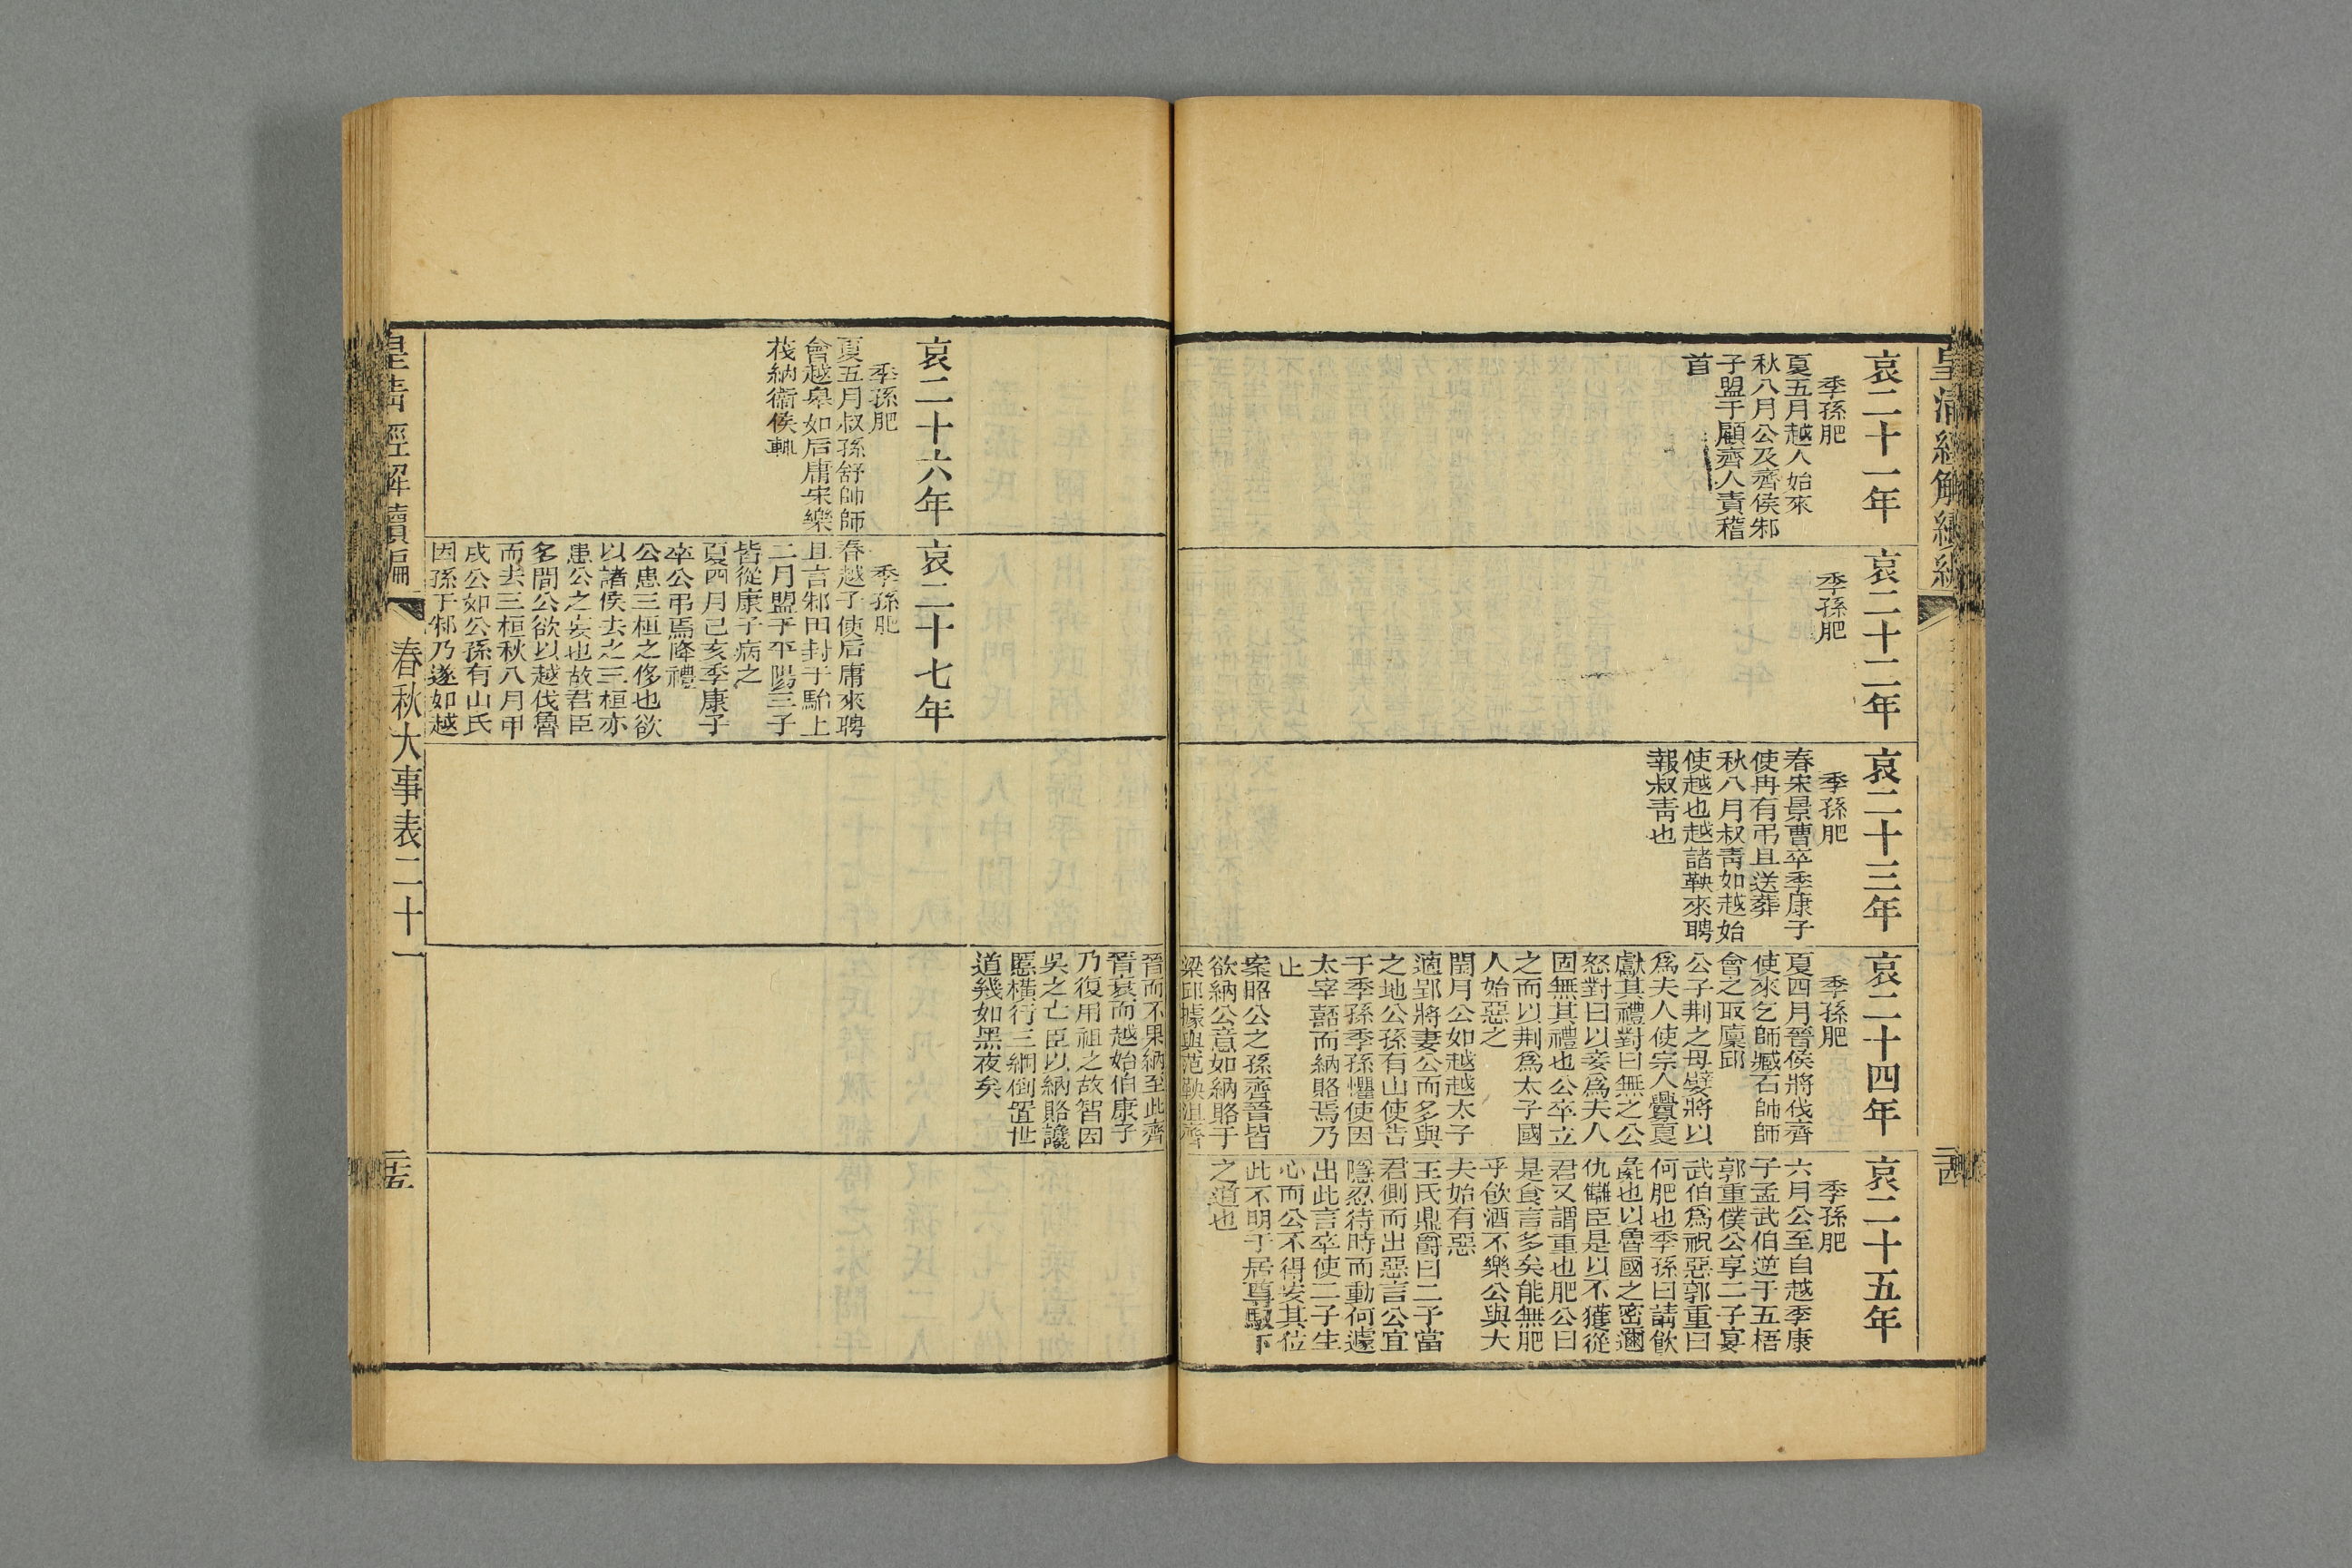 皇清經解續編
哀二十一年
季孫肥
夏五月越人始來
秋八月公及齊侯邾
子盟于顧齊人責稽
首
哀二十二年
季孫肥
哀二十三年
季孫肥
春宋景曹卒季康子
使冉有弔且送葬
秋八月叔青如越始
使越也越諸鞅來聘
報叔青也
哀二十四年
季孫肥
夏四月晉侯將伐齊
使來乞師臧石帥師
會之取廩邱
公子荆之母嬖將以
爲夫人使宗人釁夏
獻其禮對曰無之公
怒對曰以妾爲夫人
固無其禮也公卒立
之而以荆爲太子國
人始惡之
閏月公如越越太子
適郢將妻公而多與
之地公孫有山使告
于季孫季孫懼使因
太宰嚭而納賂焉乃
止
案昭公之孫齊晉皆
欲納公意如納賂于
梁邱據與范鞅沮齊
晉而不果納至此齊
晉衰而越始伯康子
乃復用祖之故智因
吳之亡臣以納賂讒
慝橫行三綱倒置世
道幾如黑夜矣
哀二十五年
季孫肥
六月公至自越季康
子孟武伯逆于五梧
郭重僕公享二子宴
武伯爲祝惡郭重曰
何肥也季孫曰請飲
彘也以魯國之密邇
仇讎臣是以不獲從
君又謂重也肥公曰
是食言多矣能無肥
乎飲酒不樂公與大
夫始有惡
王氏鼎爵曰二子當
君側而出惡言公宜
隱忍待時而動何遽
出此言卒使二子生
心而公不得安其位
此不明于居尊馭下
之道也
二十四
哀二十六年
季孫肥
夏五月叔孫舒帥師
會越皋如后庸宋樂
茷納衞侯輒
哀二十七年
季孫肥
春越子使后庸來聘
且言邾田封于駘上
二月盟于平陽三子
皆從康子病之
夏四月己亥季康子
卒公弔焉降禮
公患三桓之侈也欲
以諸侯去之三桓亦
患公之妄也故君臣
多間公欲以越伐魯
而去三桓秋八月甲
戌公如公孫有山氏
因孫于邾乃遂如越
皇清經解續編
春秋大事表二十一
二十五